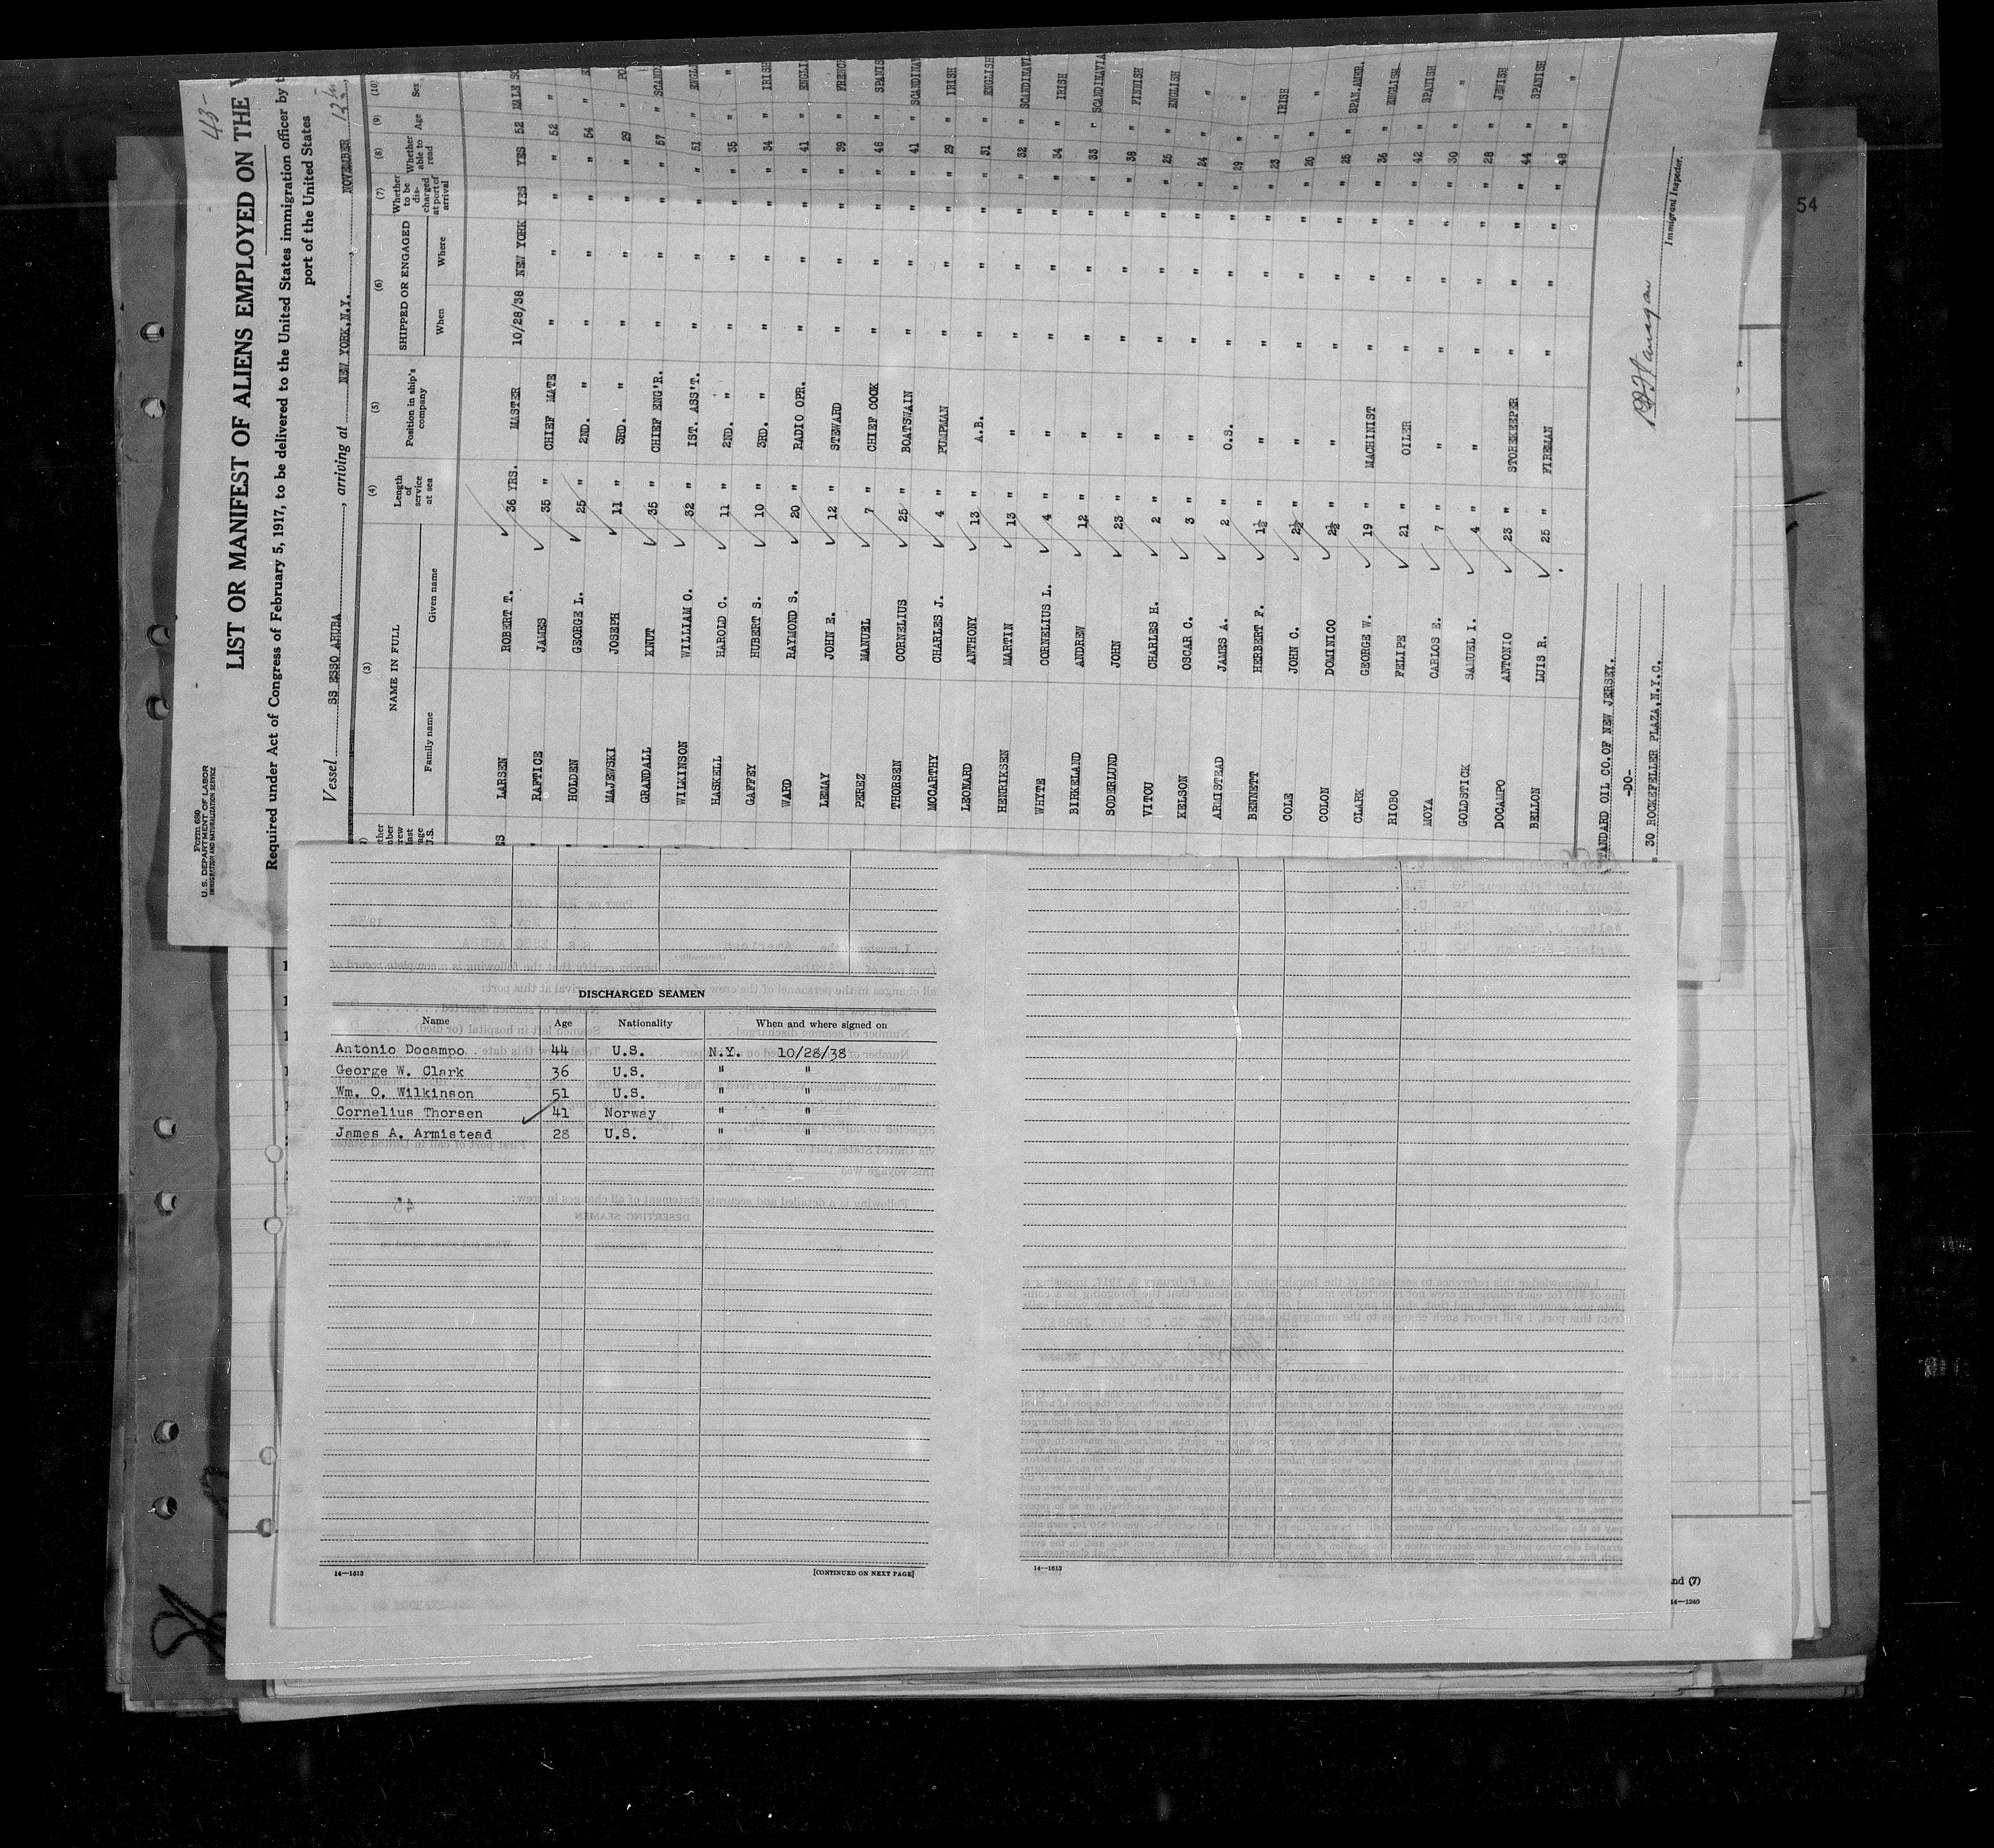 Form 680
U.S. DEPARTMENT OF LABOR
IMMIGRATION AND NATURALIZATION SERVICE
43-
LIST OR MANIFEST OF ALIENS EMPLOYED ON THE
Required under Act of Congress of February 5, 1917, to be delivered to the United States immigration officer by
port of the United States
Vessel SS ESSO ARUBA, arriving at NEW YORK,N.Y., NOVEMBER 12
(3) (4) (5) (6) (7) (8) (9) (10)
NAME IN FULL Length of service at sea Position in ship's company SHIPPED OR ENGAGED Whether to be discharged at port of arrival Whether able to read Age Sex
Family name Given name When Where
LARSEN ROBERT T. 36 YRS. MASTER 10/28/38 NEW YORK YES YES 52 MALE SC
RAFTICE JAMES 35 " CHIEF MATE " " " " 52 " "
HOLDEN GEORGE L. 25 " 2ND. " " " " " 54 " E
MAJEWSKI JOSEPH 11 " 3RD. " " " " " 29 " PO
GRANDALL KNUT 35 " CHIEF ENG'R. " " " " 57 " SCAND
WILKINSON WILLIAM O. 32 " IST. ASS'T. " " " " 51 " ENGL
HASKELL HAROLD C. 11 " 2ND. " " " " " 35 " "
GAFFEY HUBERT S. 10 " 3RD. " " " " " 34 " IRISH
WARD RAYMOND S. 20 " RADIO OPR. " " " " 41 " ENGLI
LEMAY JOHN E. 12 " STEWARD " " " " 39 " FRENCH
PEREZ MANUEL 7 " CHIEF COOK " " " " 48 " SPANIS
THORSEN CORNELIUS 25 " BOATSWAIN " " " " 41 " SCANDINAV
MCCARTHY CHARLES J. 4 " PUMPMAN " " " " 29 " IRISH
LEONARD ANTHONY 13 " A.B. " " " " 31 " ENGLISH
HENRIKSEN MARTIN 13 " " " " " " 32 " SCANDINAVI
WHYTE CORNELIUS L. 4 " " " " " " 34 " IRISH
BIRKELAND ANDREW 12 " " " " " " 33 " SCANDINAVIA
SODERLUND JOHN 23 " " " " " " 38 " FINNISH
VITOU CHARLES H. 2 " " " " " " 25 " ENGLISH
KELSON OSCAR C. 3 " " " " " " 24 " "
ARMISTEAD JAMES A. 2 " O.S. " " " " 29 " "
BENNETT HERBERT F. 1½ " " " " " " 23 " IRISH
COLE JOHN C. 2½ " " " " " " 20 " "
COLON DOMINICO 2½ " " " " " " 25 " SPAN.AMER.
CLARK GEORGE W. 19 " MACHINIST " " " " 36 " ENGLISH
RIOBO FELIPE 21 " OILER " " " " 42 " SPANISH
MOYA CARLOS E. 7 " " " " " " 30 " "
GOLDSTICK SAMUEL I. 4 " " " " " " 28 " JEWISH
DOCAMPO ANTONIO 23 " STOREKEEPER " " " " 44 " SPANISH
BELLON LUIS R. 25 " FIREMAN " " " " 48 " "
STANDARD OIL CO.OF NEW JERSEY.
-DO-
30 ROCKEFELLER PLAZA,N.Y.C.
Immigrant Inspector.
54
DISCHARGED SEAMEN
Name Age Nationality When and where signed on
Antonio Docampo 44 U.S. N.Y. 10/28/38
George W. Clark 36 U.S. " "
Wm. O. Wilkinson 51 U.S. " "
Cornelius Thorsen 41 Norway " "
James A. Armistead 28 U.S. " "
14—1613 [CONTINUED ON NEXT PAGE]
14—1613
nd (7)
14—1240